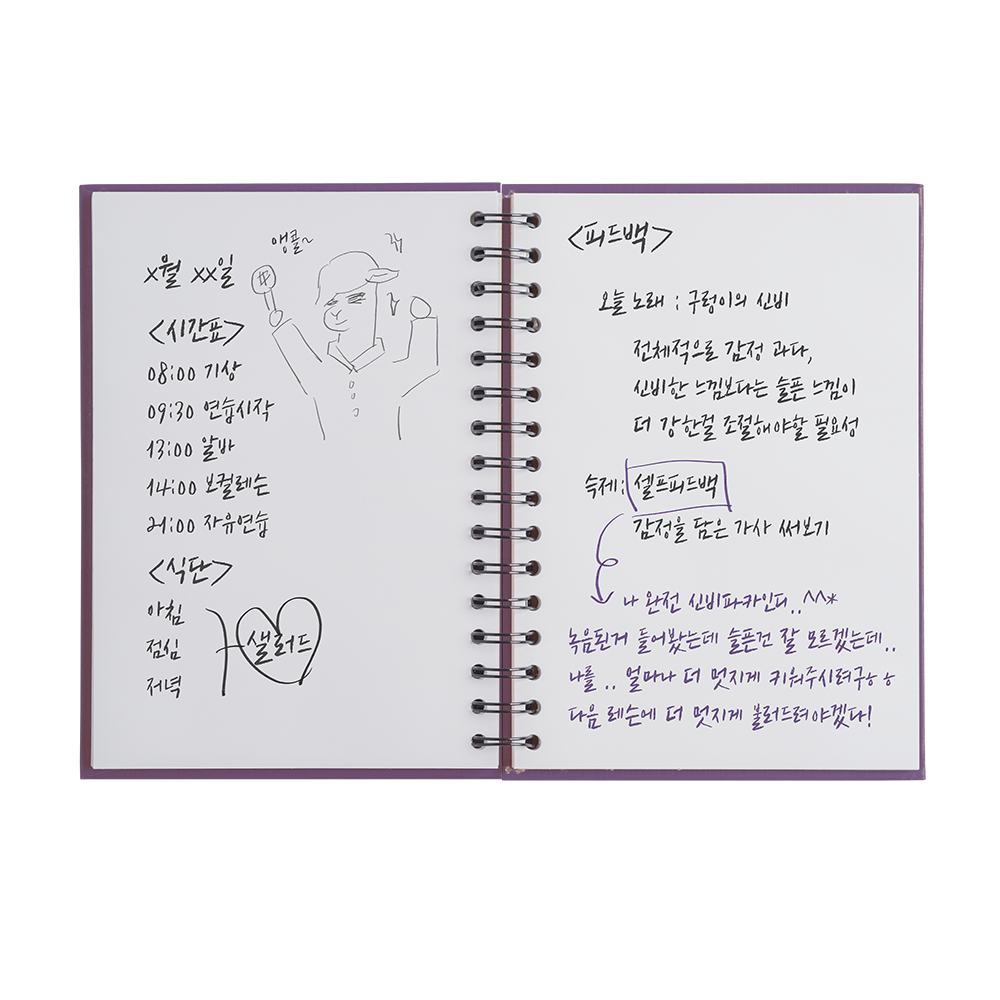 x월 xx일
앵콜~
<시간표>
08:00 기상
09:30 연습시작
13:00 알바
14:00 보컬레슨
21:00 자유연습
<식단>
아침
점심
저녁
샐러드
<피드백>
오늘 노래 : 구렁이의 신비
전체적으로 감정 과다,
신비한 느낌보다는 슬픈 느낌이
더 강한걸 조절해야할 필요성
숙제: 셀프피드백
감정을 담은 가사 써보기
나 완전 신비파카인디..^^*
녹음된거 들어봤는데 슬픈건 잘 모르겠는데..
나를.. 얼마나 더 멋지게 키워주시려구ㅎㅎ
다음 레슨에 더 멋지게 불러드려야겠다!